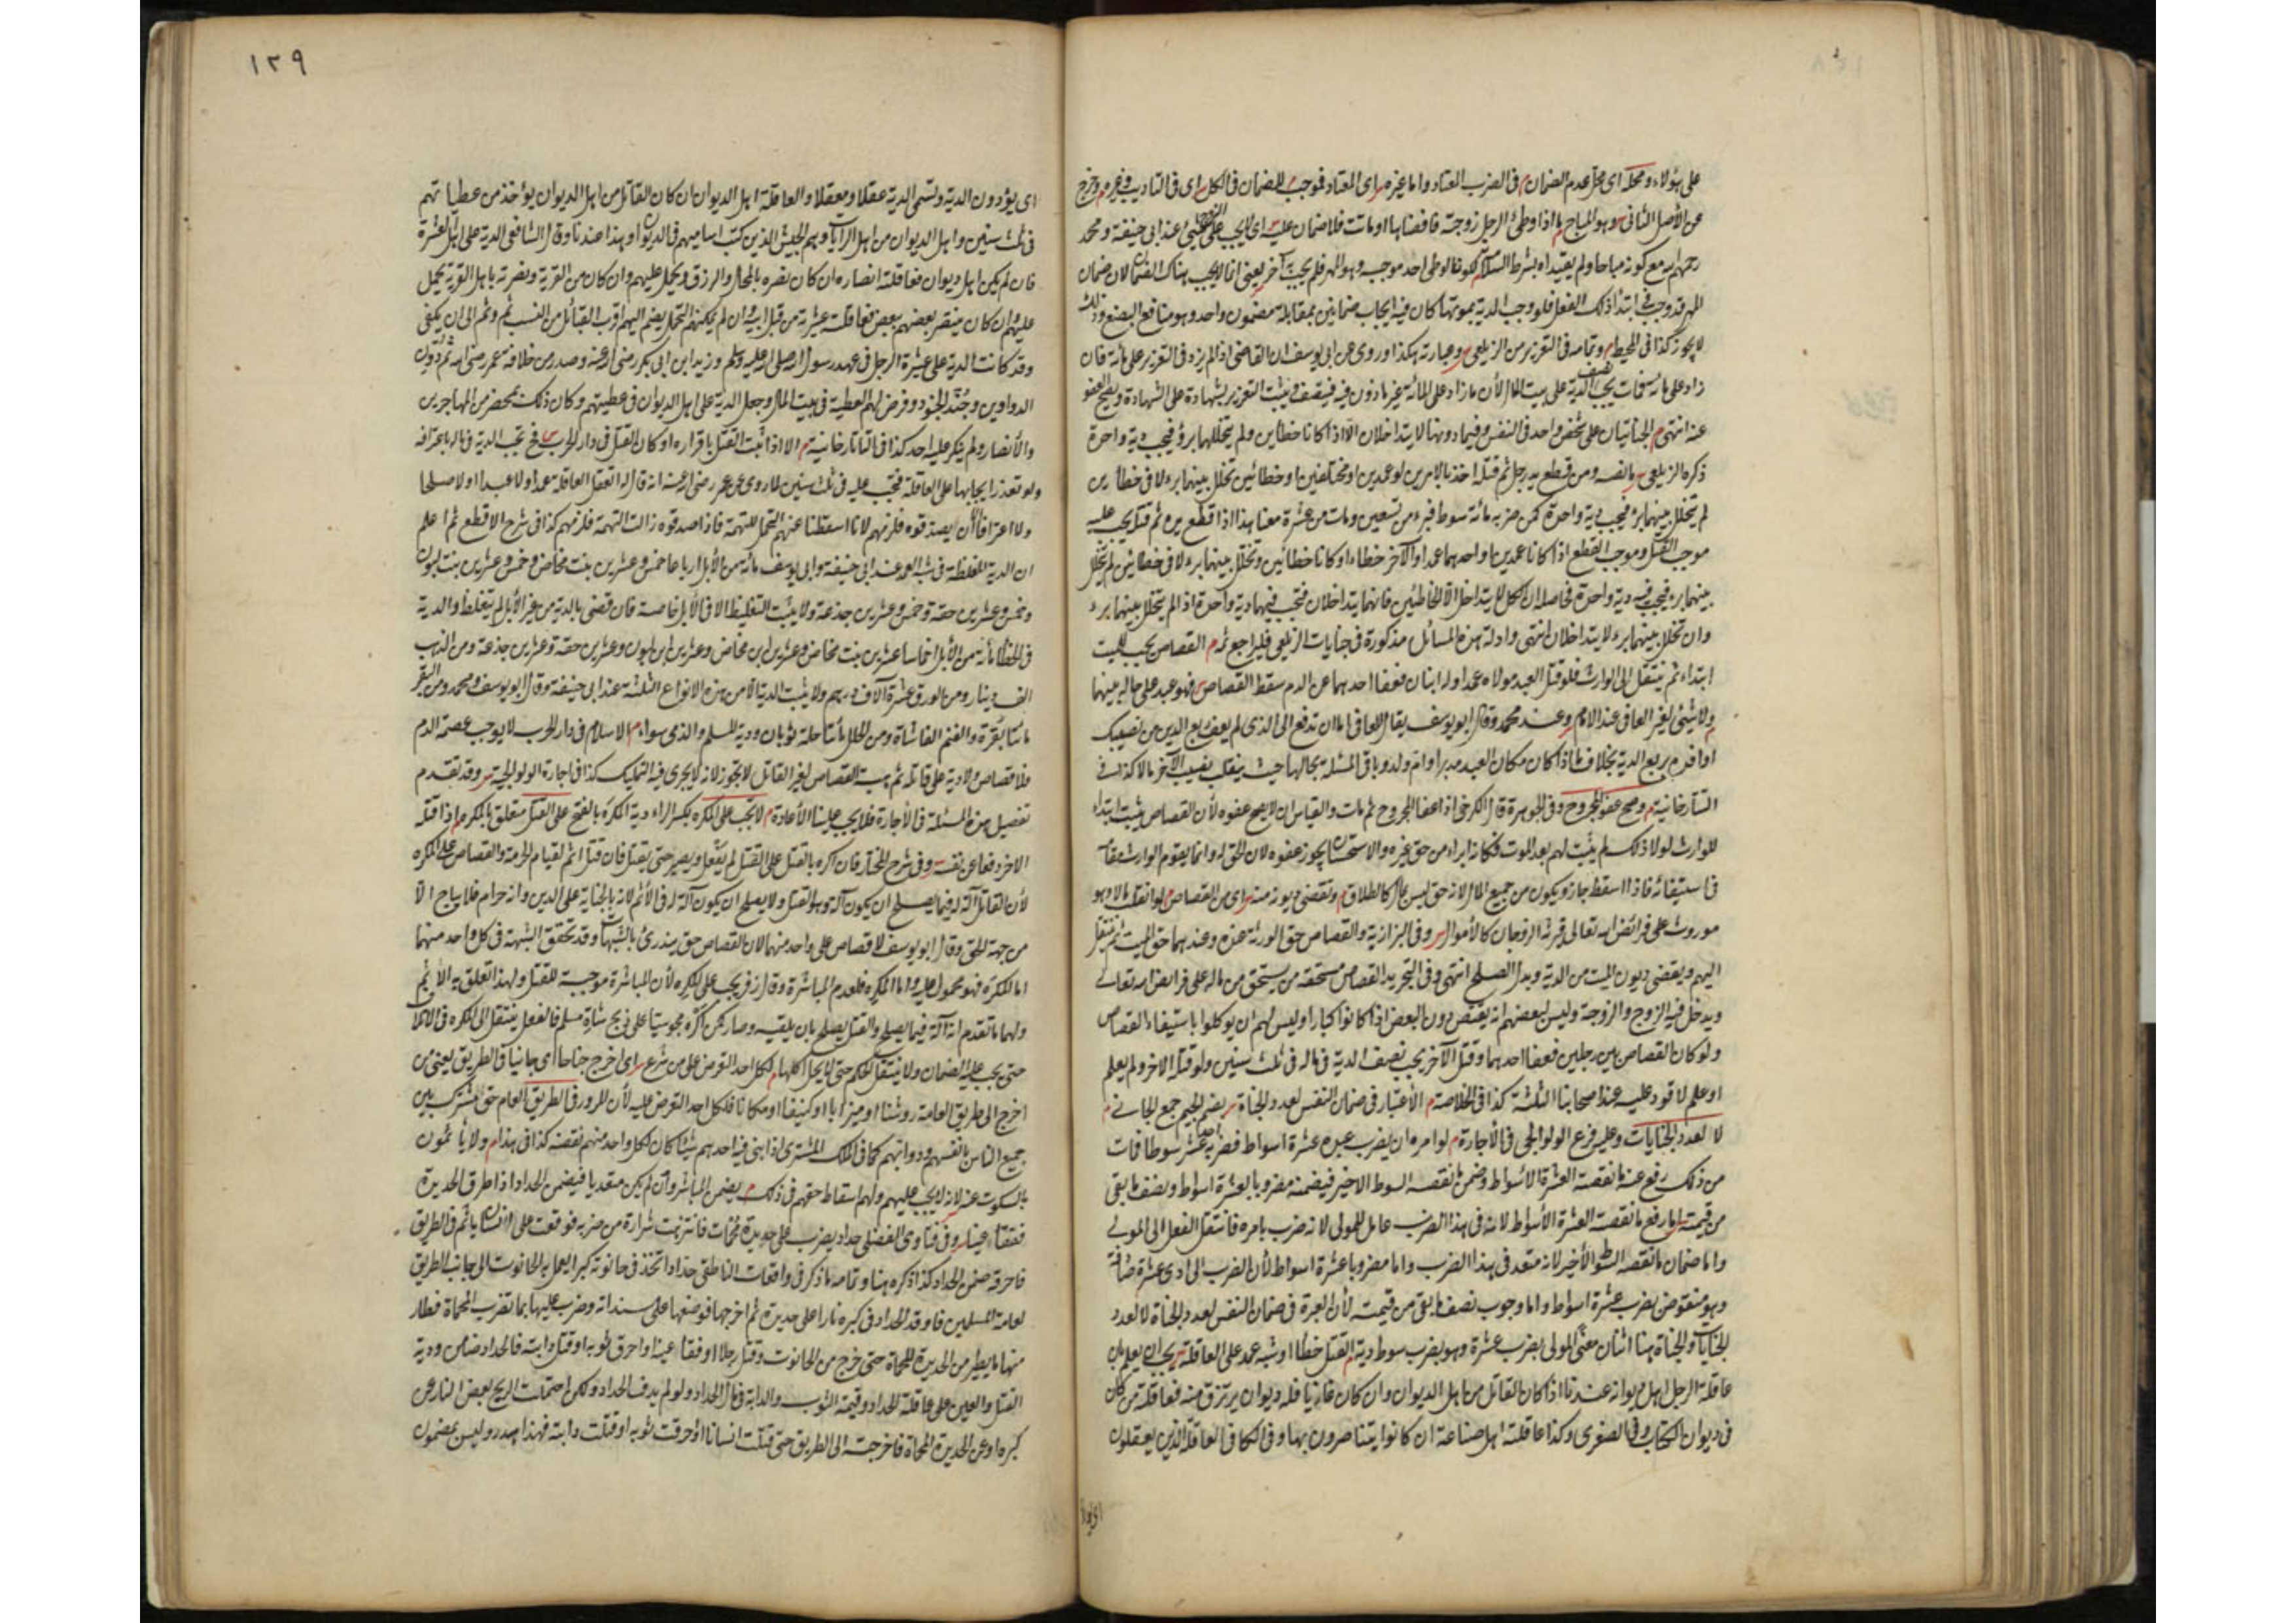 على هؤلاء ومحله اى محل عدم الضمان م فى الضرب المعتاد واما غيره س اى المعتاد فموجب للضمان فى الكل س اى فى التاديب وغيره م وخرج
عن الأصل الثانى س وهو المباح م ما اذا وطئ الرجل زوجته فافضاها او ماتت فلا ضمان عليه اى لا يجب على عند ابى حنيفة ومحمد
رحمهما الله مع كونه مباحا ولم يقيداه بشرط السلامة لكونها لوطى احد موجبه وهو المهر فلم يجب آخر يعنى انما لا يجب هناك الضمان لان ضمان
المهر قد وجب فى ابتداء ذلك الفعل فلو وجب الدية بموتها كان فيه ايجاب ضمانين بمقابلة مضمون واحد وهو منافع البضع وذلك
لا يجوز كذا فى المحيط م وتمامه فى التعزير من الزيلعى س وعبارته هكذا وروى عن ابى يوسف ان القاضى اذا لم يزد فى التعزير على مائة فان
زاد على مائة فمات يجب نصف الدية على بيت المال لأن ما زاد على المائة غير مأذون فيه فينصف ويثبت التعزير بشهادة على الشهادة ويصح العفو
عنه انتهى م الجنايتان على شخص واحد فى النفس وفيما دونها لا يتداخلان الا اذا كانا خطاين ولم يتخللهما برؤ فيجب دية واحدة
ذكره الزيلعى س بالنفسه ومن قطع يد رجل ثم قتله اخذ بالامرين لو عمدين او مختلفين او خطائين تخلل بينهما برء لا فى خطائين
لم يتخلل بينهما برؤ فيجب دية واحدة كمن ضربه مائة سوط فبرء من تسعين ومات من عشرة معنا هذا اذا قطع يده ثم قتل يجب عليه
موجب القتل وموجب القطع اذا كانا عمدين او احدهما عمدا والآخر خطاء او كانا خطائين وتخلل بينهما برء لا فى خطائين لم يتخلل
بينهما برء فيجب فيه دية واحدة فحاصله ان الكل لا يتداخل الا الخاطئين فانهما يتداخلان فتجب فيهما دية واحدة اذا لم يتخلل بينهما برء
وان تخلل بينهما برء لا يتداخلان انتهى وادلة هذه المسائل مذكورة فى جنايات الزيلعى فليراجع ثمه م القصاص يجب للميت
ابتداء ثم ينتقل الى الوارث فلو قتل العبد مولاه عمدا وله ابنان فعفا احدهما عن الدم سقط القصاص فهو عبد على حاله بينهما
ولا شيئ لغير العافى عند الامام وعند محمد وقال ابو يوسف يقال للعافى اما ان تدفع الى الذى لم يعف ربع الدين من نصيبك
او افده بربع الدية بخلاف ما اذا كان مكان العبد مدبر او ام ولد وباقى المسئلة بحالها حيث ينقلب نصيب الآخر مالا كذا فى
التتارخانية م وصح عفو المجروح وفى الجوهرة قال الكرخى اذا عفا المجروح ثم مات والقياس ان لا يصح عفوه لأن القصاص يثبت ابتداء
للوارث لولا ذلك لم يثبت لهم بعد الموت فكانه ابراء من حق غيره والاستحسان يجوز عفوه لان الحق له وانما يقوم الوارث مقامه
فى استيفائه فاذا اسقط جاز ويكون من جميع المال لانه حق ليس بمال كالطلاق م وتقضى ديونه منه س اى من القصاص لو انقلب مالا وهو
موروث على فرائض الله تعالى فيرثه الزوجان كالأموال س وفى البزازية والقصاص حق الورثة عنده وعندهما حق الميت ثم ينتقل
اليهم ويقضى ديون الميت من الدية وبدل الصلح انتهى وفى التجريد القصاص مستحقه من يستحق من ماله على فرائض الله تعالى
ويدخل فيه الزوج والزوجة وليس لبعضهم ان يقتص دون البعض اذا كانوا كبارا وليس لهم ان يوكلوا باستيفاء القصاص
ولو كان القصاص بين رجلين فعفا احدهما وقتل الآخر يجب نصف الدية فى ماله فى ثلث سنين ولو قتله الاخر ولم يعلم
او علم لا قود عليه عند اصحابنا الثلثة كذا فى الخلاصة م الأعتبار فى ضمان النفس لعدد الجناة س بضم الجيم جمع الجانى م
لا لعدد الجنايات وعليه فرع الولوالجى فى الأجارة م لو امره ان يضرب عبده عشرة اسواط فضربه احد عشر سوطا فمات
من ذلك رفع عنه ما نقصته العشرة الاسواط وضمن ما نقصه السوط الاخير فيضمنه مضروبا بعشرة اسواط ونصف ما بقى
من قيمته س اما رفع ما نقصت العشرة الأسواط لانه فى هذا الضرب عامل للمولى لانه ضرب بامره فانتقل الفعل الى المولى
واما ضمان ما نقصه السوط الأخير لانه متعد فى هذا الضرب واما مضروبا عشرة اسواط لأن الضرب الحادى عشرة صادفه
وهو منقوض بضرب عشرة اسواط واما وجوب نصف ما بقى من قيمته لأن العبرة فى ضمان النفس لعدد الجناة لا لعدد
الجنايات والجناة هنا اثنان معنى المولى بضرب عشرة وهو بضرب سوط م دية القتل خطأ او شبه عمد على العاقلة س يجب ان يعلم بان
عاقلة الرجل اهل ديوانه عندنا اذا كان القاتل من اهل الديوان وان كان غازيا فله ديوان يرتزق منه فعاقلته من كان
فى ديوان الكتاب وفى الصغرى وكذا عاقلته اهل صناعته ان كانوا يتناصرون بها وفى الكافى العاقلة الذين يعقلون
١٢٩
اى يؤدون الدية وتسمى الدية عقلا ومعقلا والعاقلة اهل الديوان ان كان القاتل من اهل الديوان يؤخذ من عطياتهم
فى ثلث سنين واهل الديوان من اهل الرايات وهم الجيش الذين كتب اساميهم فى الديوان وهذا عندنا وقال الشافعى الدية على اهل العشيرة
فان لم يكن اهل ديوان فعاقلته انصاره ان كان نصره بالمحال والرزق ويحمل عليهم وان كان من القرية ونصرته باهل القرية يحمل
عليهم وان كان ينصر بعضهم بعض فعاقلته عشيرته من قبل ابيه وان لم يمكنهم التحمل يضم اليهم اقرب القبائل من النسب ثم وثم الى ان يكفى
وقد كانت الدية على عشيرة الرجل فى عهد رسول الله صلى الله عليه وسلم وزيد ابن ابى بكر رضى الله عنه وصدر من خلافة عمر رضى الله ثم دون
الدواوين وجند الجنود وفرض لهم العطية فى بيت المال وجعل الدية على اهل الديوان فى عطيتهم وكان ذلك بمحضر من المهاجرين
والأنصار ولم ينكر عليه احد كذا فى التاتارخانية م الا اذا ثبت القتل باقراره او كان القتل فى دار الحرب س فح تجب الدية فى ماله باعترافه
ولو تعذر ايجابها على العاقلة فتجب عليه فى ثلث سنين لما روى عن عمر رضى الله عنه انه قال لا تعقل العاقلة عمدا ولا عبدا ولا صلحا
ولا اعترافا الا أن يصدقوه فلزمهم لانا اسقطنا عنهم التحمل للتهمة فاذا صدقوه زالت التهمة فلزمهم كذا فى شرح الاقطع ثم اعلم
ان الدية المغلظة فى شبه العمد عند ابى حنيفة وابى يوسف مائة من الأبل ارباعا خمس وعشرين بنت مخاض وخمس وعشرين بنت لبون
وخمس وعشرين حقة وخمس وعشرين جذعة ولا يثبت التغليظ الا فى الأبل خاصة فان قضى بالدية من غير الأبل لم يتغلظ والدية
فى الخطأ مائة من الأبل اخماسا عشرين بنت مخاض وعشرين ابن مخاض وعشرين ابن لبون وعشرين حقة وعشرين جذعة ومن الذهب
الف دينار ومن الورق عشرة آلاف درهم ولا يثبت الدية الا من هذه الانواع الثلثة عند ابى حنيفة وقال ابو يوسف ومحمد ومن البقر
مائتا بقرة والغنم الفا شاة ومن الحلل مأتا حلة ثوبان ودية المسلم والذمى سواء م الاسلام فى دار الحرب لا يوجب عصمة الدم
فلا قصاص ولا دية على قاتله ثم هبة القصاص لغير القاتل لا يجوز لانه لا يجرى فيه التمليك كذا فى اجارة الولوالجية س وقد تقدم
تفصيل هذه المسئلة فى الأجارة فلا يجب علينا الأعادة م لا يجب على المكره بكسر الراء دية المكره بالفتح على القتل متعلق بالمكره م اذا قتله
الاخر دفعا عن نفسه س وفى شرح المختار فان اكره بالقتل على القتل لم يفعل ويصبر حتى يقتل فان قتل اثم لقيام الحرمة والقصاص على المكره
لأن القاتل آلة له فيما يصلح ان يكون آلة وهو القتل ولا يصلح ان يكون آلة له فى الأثم لانه بالجناية على الدين وانه حرام فلا يباح الا
من جهة الحق وقال ابو يوسف لا قصاص على واحد منهما لان القصاص حق يندرئ بالشبهات وقد تحقق الشبهة فى كل واحد منهما
اما المكره فهو محمول عليه واما المكره فلعدم المباشرة وقال زفر يجب على المكره لأن المباشرة موجبة للقتل ولهذا تعلق به الأثم
ولهما ما تقدم انه آلة فيما يصلح والقتل يصلح بان يلقيه وصار كمن اكره مجوسيا على ذبح شاة مسلم فالفعل ينتقل الى المكره فى الاتلاف
حتى يجب عليه الضمان ولا ينتقل الحكم حتى لا يحل اكلها م لكل احد التعرض على من شرع س اى اخرج جناحا اى جانبا فى الطريق يعنى من
اخرج الى طريق العامة روشنا او ميزابا او كنيفا او مكانا فلكل احد التعرض عليه لأن المرور فى الطريق العام حق مشترك بين
جميع الناس بانفسهم ودوابهم كما فى الملك المشترى اذا بنى فيه احدهم شيئا كان لكل واحد منهم نقضه كذا فى هذا م ولا يأثمون
بالسكوت عنه لانه لا يجب عليهم ولهم اسقاط حقهم فى ذلك م يضمن المباشر وان لم يكن متعديا فيضمن الحداد اذا طرق الحديدة
ففقئا عينا س وفى فتاوى الفضلى حداد يضرب على حديدة محماة فانتزعت شرارة من ضربه فوقعت على انسان يأثم فى الطريق
فاحرقه ضمن الحداد كذا ذكره هنا وتمامه ما ذكر فى واقعات الناطفى حداد اتخذ فى حانوته كيرا ليعمل به والحانوت الى جانب الطريق
لعامة المسلمين فاوقد الحداد فى كيره نارا على حديدة ثم اخرجها فوضعها على سندانه وضرب عليها بما تضرب المحماة فطار
منها ما يطير من الحديدة المحماة حتى خرج من الحانوت وقتل رجلا او فقأ عينه او احرق ثوبه او قتل دابته فالحداد ضامن ودية
القتل والعين على عاقلة الحداد وقيمة الثوب والدابة فى مال الحداد ولو لم يدق الحداد ولكن احتملت الريح بعض النار عن
كيره او عن الحديدة المحماة فاخرجته الى الطريق حتى قتلت انسانا او احرقت ثوبه او قتلت دابته فهذا هدر وليس بمضمون